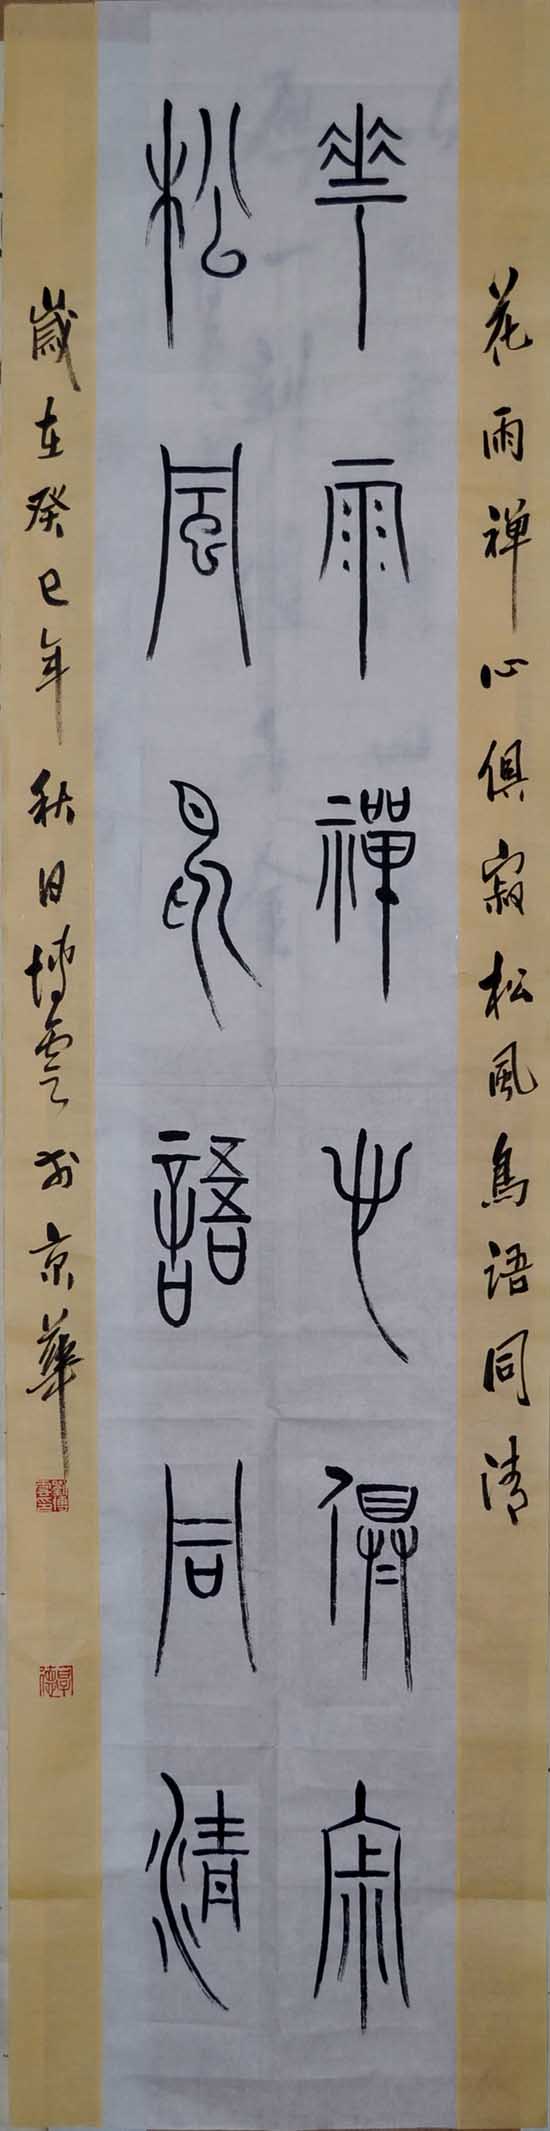 花雨禅心俱寂松风鸟语同清
華雨禪心俱寂
松風鳥語同清
歲在癸巳年秋日博雲於京華